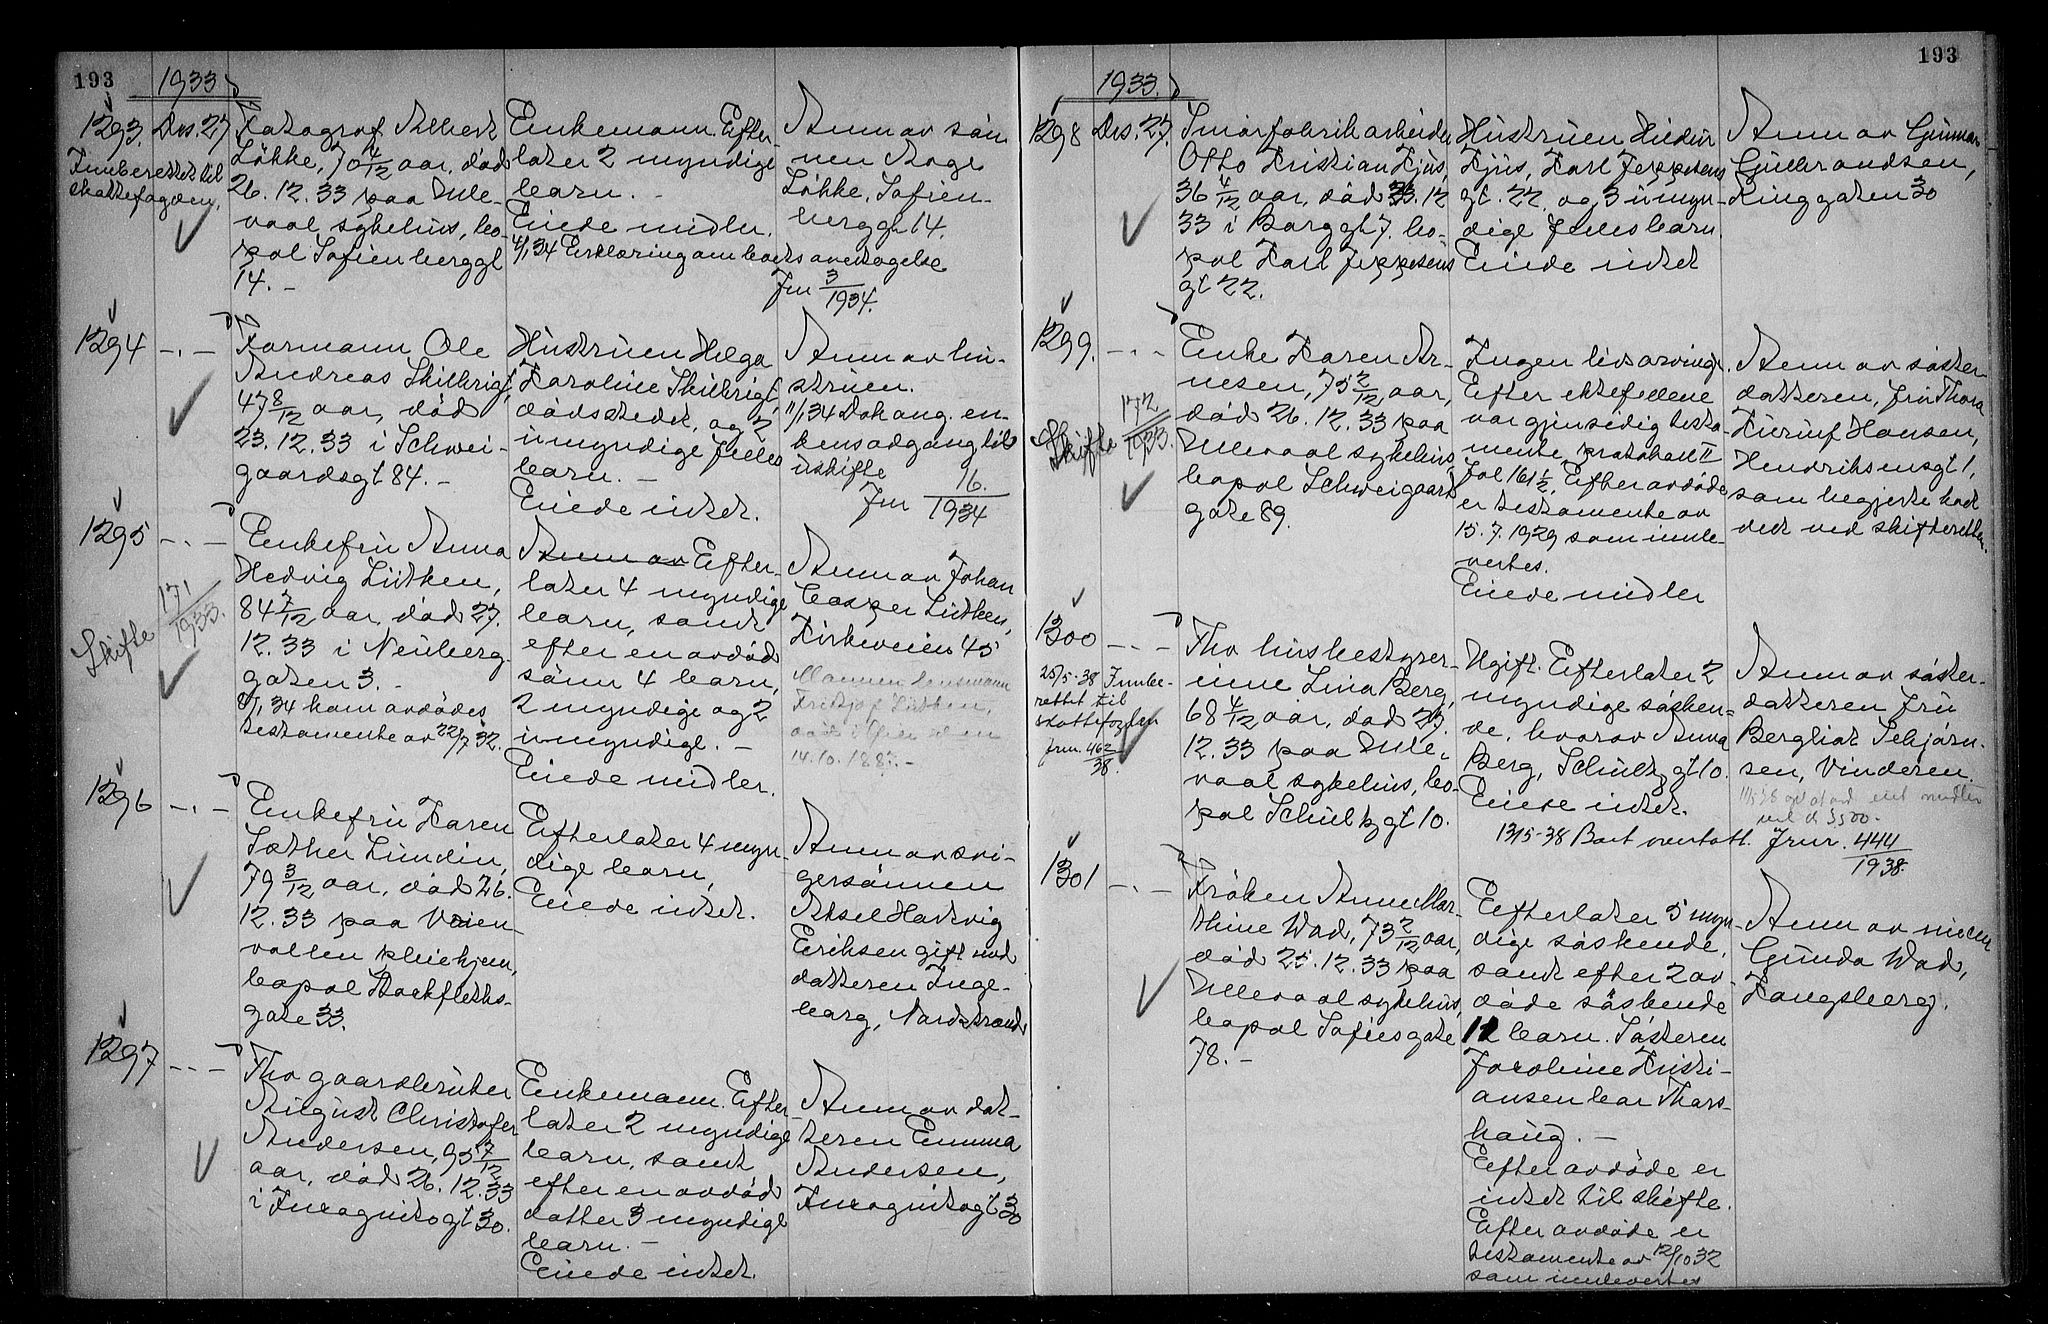 193
1933
1293. Des. 27.
Innberettet til
skattefogden.
Fotograf Albert
Løkke, 70 4/12 aar, død
26.12.33 paa Ulle-
vaal sykehus, bo-
pæl Sofienberggt
14. -
Enkemann. Efter-
later 2 myndige
barn. -
Eiede midler.
4/1 34 Erklæring om boets overtagelse
Jnr 3/1934.
Anm av søn-
nen Aage
Løkke, Sofien-
berggt 14.
1294 -.-
Formann Ole
Andreas Skilbrigt,
47 8/12 aar, død
23.12.33 i Schwei-
gaardsgt 84. -
Hustruen Helga
Karoline Skilbrigt,
dødsstedet, og 2
umyndige fælles
barn. -
Eiede intet.
Anm av hu-
struen.
11/1 34 Dok ang. en-
kens adgang til
uskifte
Jnr 16./1934
1295 -.-
Skifte 171/1933.
Enkefru Anna
Hedvig Lütken,
84 7/12 aar, død 27.
12.33 i Neuberg-
gaten 3. -
8/1 34 kom avdødes
testamente av 22/7 32.
Anm av Efter-
later 4 myndige
barn, samt
efter en avdød
sønn 4 barn,
2 myndige og 2
umyndige. -
Eiede midler.
Anm av Johan
Casper Lütken,
Kirkeveien 45
Mannen lensmann
Fritjof Lütken,
død i
14.10.188
1296 -.-
Enkefru Karen
Sæther Lundin,
79 3/12 aar, død 26.
12.33 paa Voien-
vollen pleiehjem,
bopæl Stockfleths-
gate 33.
Efterlater 4 myn-
dige barn,
Eiede intet.
Anm av svi-
gersønnen
Aksel Hartvig
Eriksen gift med
datteren Inge-
borg, Nordstrand
1297 -.-
Fhv gaardbruker
August Christofer
Andersen, 95 7/12
aar, død 26.12.33
i Incognitogt 30.
Enkemann. Efter-
later 2 myndige
barn, samt
efter en avdød
datter 3 myndige
barn. -
Eiede intet.
Anm av dat-
teren Emma
Andersen,
Incognitogt 30
193
1933.
1298 Des. 27.
Smørfabrikarbeider
Otto Kristian Kjus,
36 4/12 aar, død 23.12
33 i Borggt 7. bo-
pæl Karl Jeppesens
gt 22.
Hustruen Hildur
Kjus, Karl Jeppesens
gt. 22 og 3 umyn-
dige fælles barn.
Eiede intet
Anm av Gunnar
Gulbrandsen,
Ringgaten 30
1299. -.-
Skifte 172/1933.
Enke Karen Ar-
nesen, 75 2/12 aar,
død 26.12.33 paa
Ullevaal sykehus,
bopæl Schweigaards
gate 89.
Ingen livsarvinge.
Efter ektefellene
var gjensidig testa-
mente, protokoll II
fol 161 1/2. Efter avdøde
er testamente av
15.7.1929 som innle-
vertes.
Eiede midler
Anm av søster-
datteren, fru Thora
Furulf Hansen,
Hendriksensgt 1,
som begjerte boet
beh ved skifteretten.
1300 -.-
25/5-38 Innbe-
rettet til
skattefogden
jrnr. 462/38.
Fhv husbestyrer-
inne Lina Berg,
68 4/12 aar, død 27.
12.33 paa Ulle-
vaal sykehus, bo-
pæl Schultzgt 10.
Ugift. Efterlater 2
myndige søsken-
de, hvorav Anna
Berg, Schultzgt 10.
Eiede intet.
13/5-38 Boet overtatt. Jrnr. 444/1938.
Anm av søster-
datteren fru
Bergliot Schjørn-
sen, Vinderen.
1301 -.-
Frøken Anne Mar-
thine Wad, 73 2/12 aar,
død 25.12.33 paa
Ullevaal sykehus,
bopæl Sofiesgate
78. -
Efterlater 5 myn-
dige søskende,
samt efter 2 av-
døde søskende
12 barn. Søsteren
Karoline Kristi-
ansen bor Thors-
haug. -
Efter avdøde er
intet til skifte.
Efter avdøde er
testamente av 12/10 32
som innlevertes
Anm av niecen
Gunda Wad,
Kongsberg.